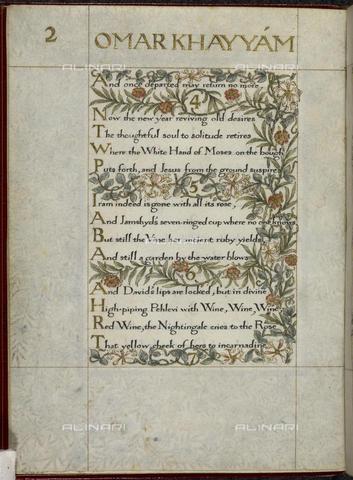 2 OMAR KHAYYÁM
And once departed may return no more.
4
Now the new year reviving old desires
The thoughtful soul to solitude retires
Where the White Hand of Moses on the bough
Puts forth, and Jesus from the ground suspires
5
Iram indeed is gone with all its rose,
And Jamshyd's seven-ringed cup where no one knows
But still the Vine her ancient ruby yields,
And still a garden by the water blows
6
And David's lips are locked, but in divine
High-piping Pehlevi with Wine, Wine, Wine,
Red Wine, the Nightingale cries to the Rose
That yellow cheek of hers to incarnadine
7
ALINARI
ALINARI
ALINARI
ALINARI